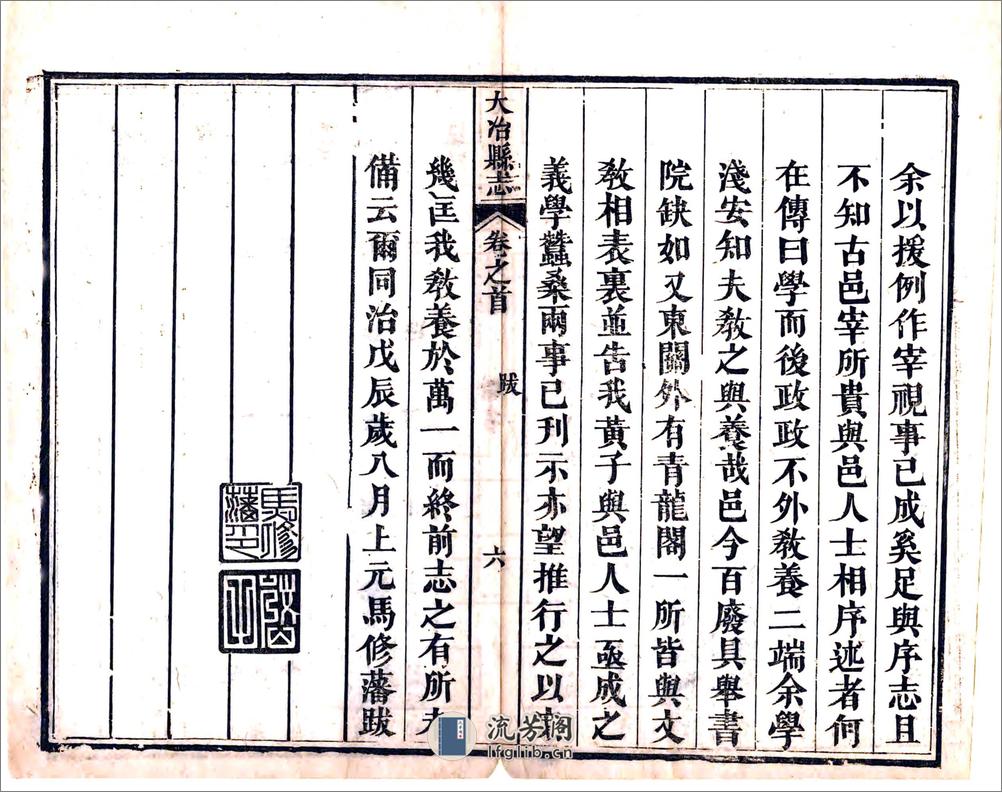 余以援例作宰視事已成奚足與序志且
不知古邑宰所貴與邑人士相序述者何
在傳曰學而後政政不外敎養二端余學
淺安知夫敎之與養哉邑今百廢具舉書
院缺如又東關外有青龍閣一所皆與文
敎相表裏並告我黃子與邑人士亟成之
義學蠶桑兩事已刋示亦望推行之以
大冶縣志 卷之首 跋 六
幾匡我敎養於萬一而終前志之有所
備云爾同治戊辰歲八月上元馬修藩跋
馬修藩印
流芳閣
lfglib.cn